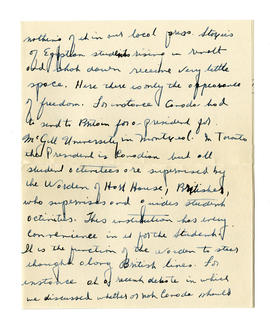 nothing of it in our local press. Stories
of Egyptian students rising in revolt
and shot down receive very little
space. Here there is only the appearance
of freedom. For instance Canada had
to send to Britain for a president for
McGill University in Montreal. In Toronto
the President is Canadian but all
student activities are supervised by
the Warden of Hart House, Britisher,
who supervises and guides student
activities. This institution has every
convenience in it for the students
It is the function of the warden to steer
thought along British lines. For
instance at a recent debate in which
we discussed whether or not Canada should